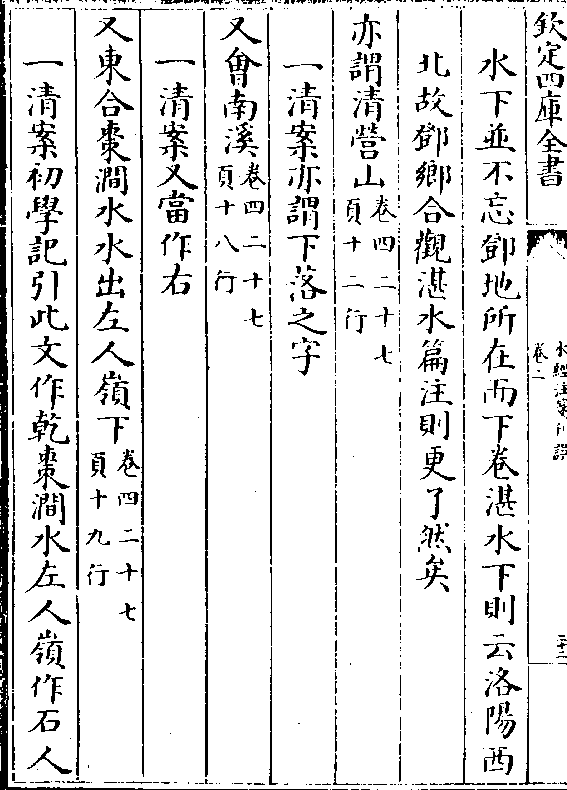 欽定四庫全書
水經注箋刊誤
卷二
水下並不忘鄧地所在而下卷湛水下則云洛陽西
北故鄧鄉合觀湛水篇注則更了然矣
亦謂清營山卷四二十七頁十二行
一清案亦謂下落之字
又會南溪卷四二十七頁十八行
一清案又當作右
又東合棗澗水水出左人嶺下卷四二十七頁十九行
一清案初學記引此文作乾棗澗水左人嶺作石人